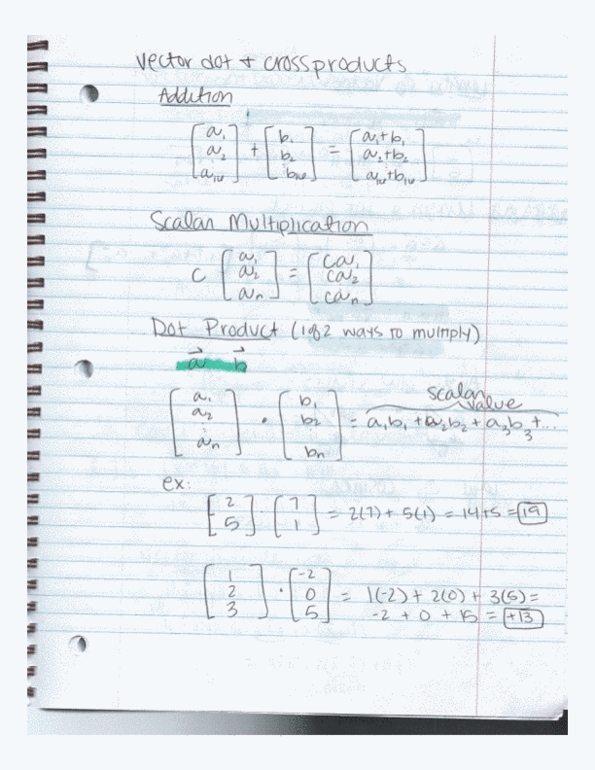 vector dot + cross products
Addition
[a₁ a₂ aₙ] + [b₁ b₂ bₙ] = [a₁+b₁ a₂+b₂ aₙ+bₙ]
Scalar Multiplication
c [a₁ a₂ aₙ] = [ca₁ ca₂ caₙ]
Dot Product (1 of 2 ways to multiply)
a⃗ b⃗
scalar value
[a₁ a₂ : aₙ] · [b₁ b₂ bₙ] = a₁b₁ + a₂b₂ + a₃b₃ + ...
ex:
[2 5] · [7 1] = 2(7) + 5(1) = 14+5 = 19
[1 2 3] · [-2 0 5] = 1(-2) + 2(0) + 3(5) =
-2 + 0 + 15 = +13